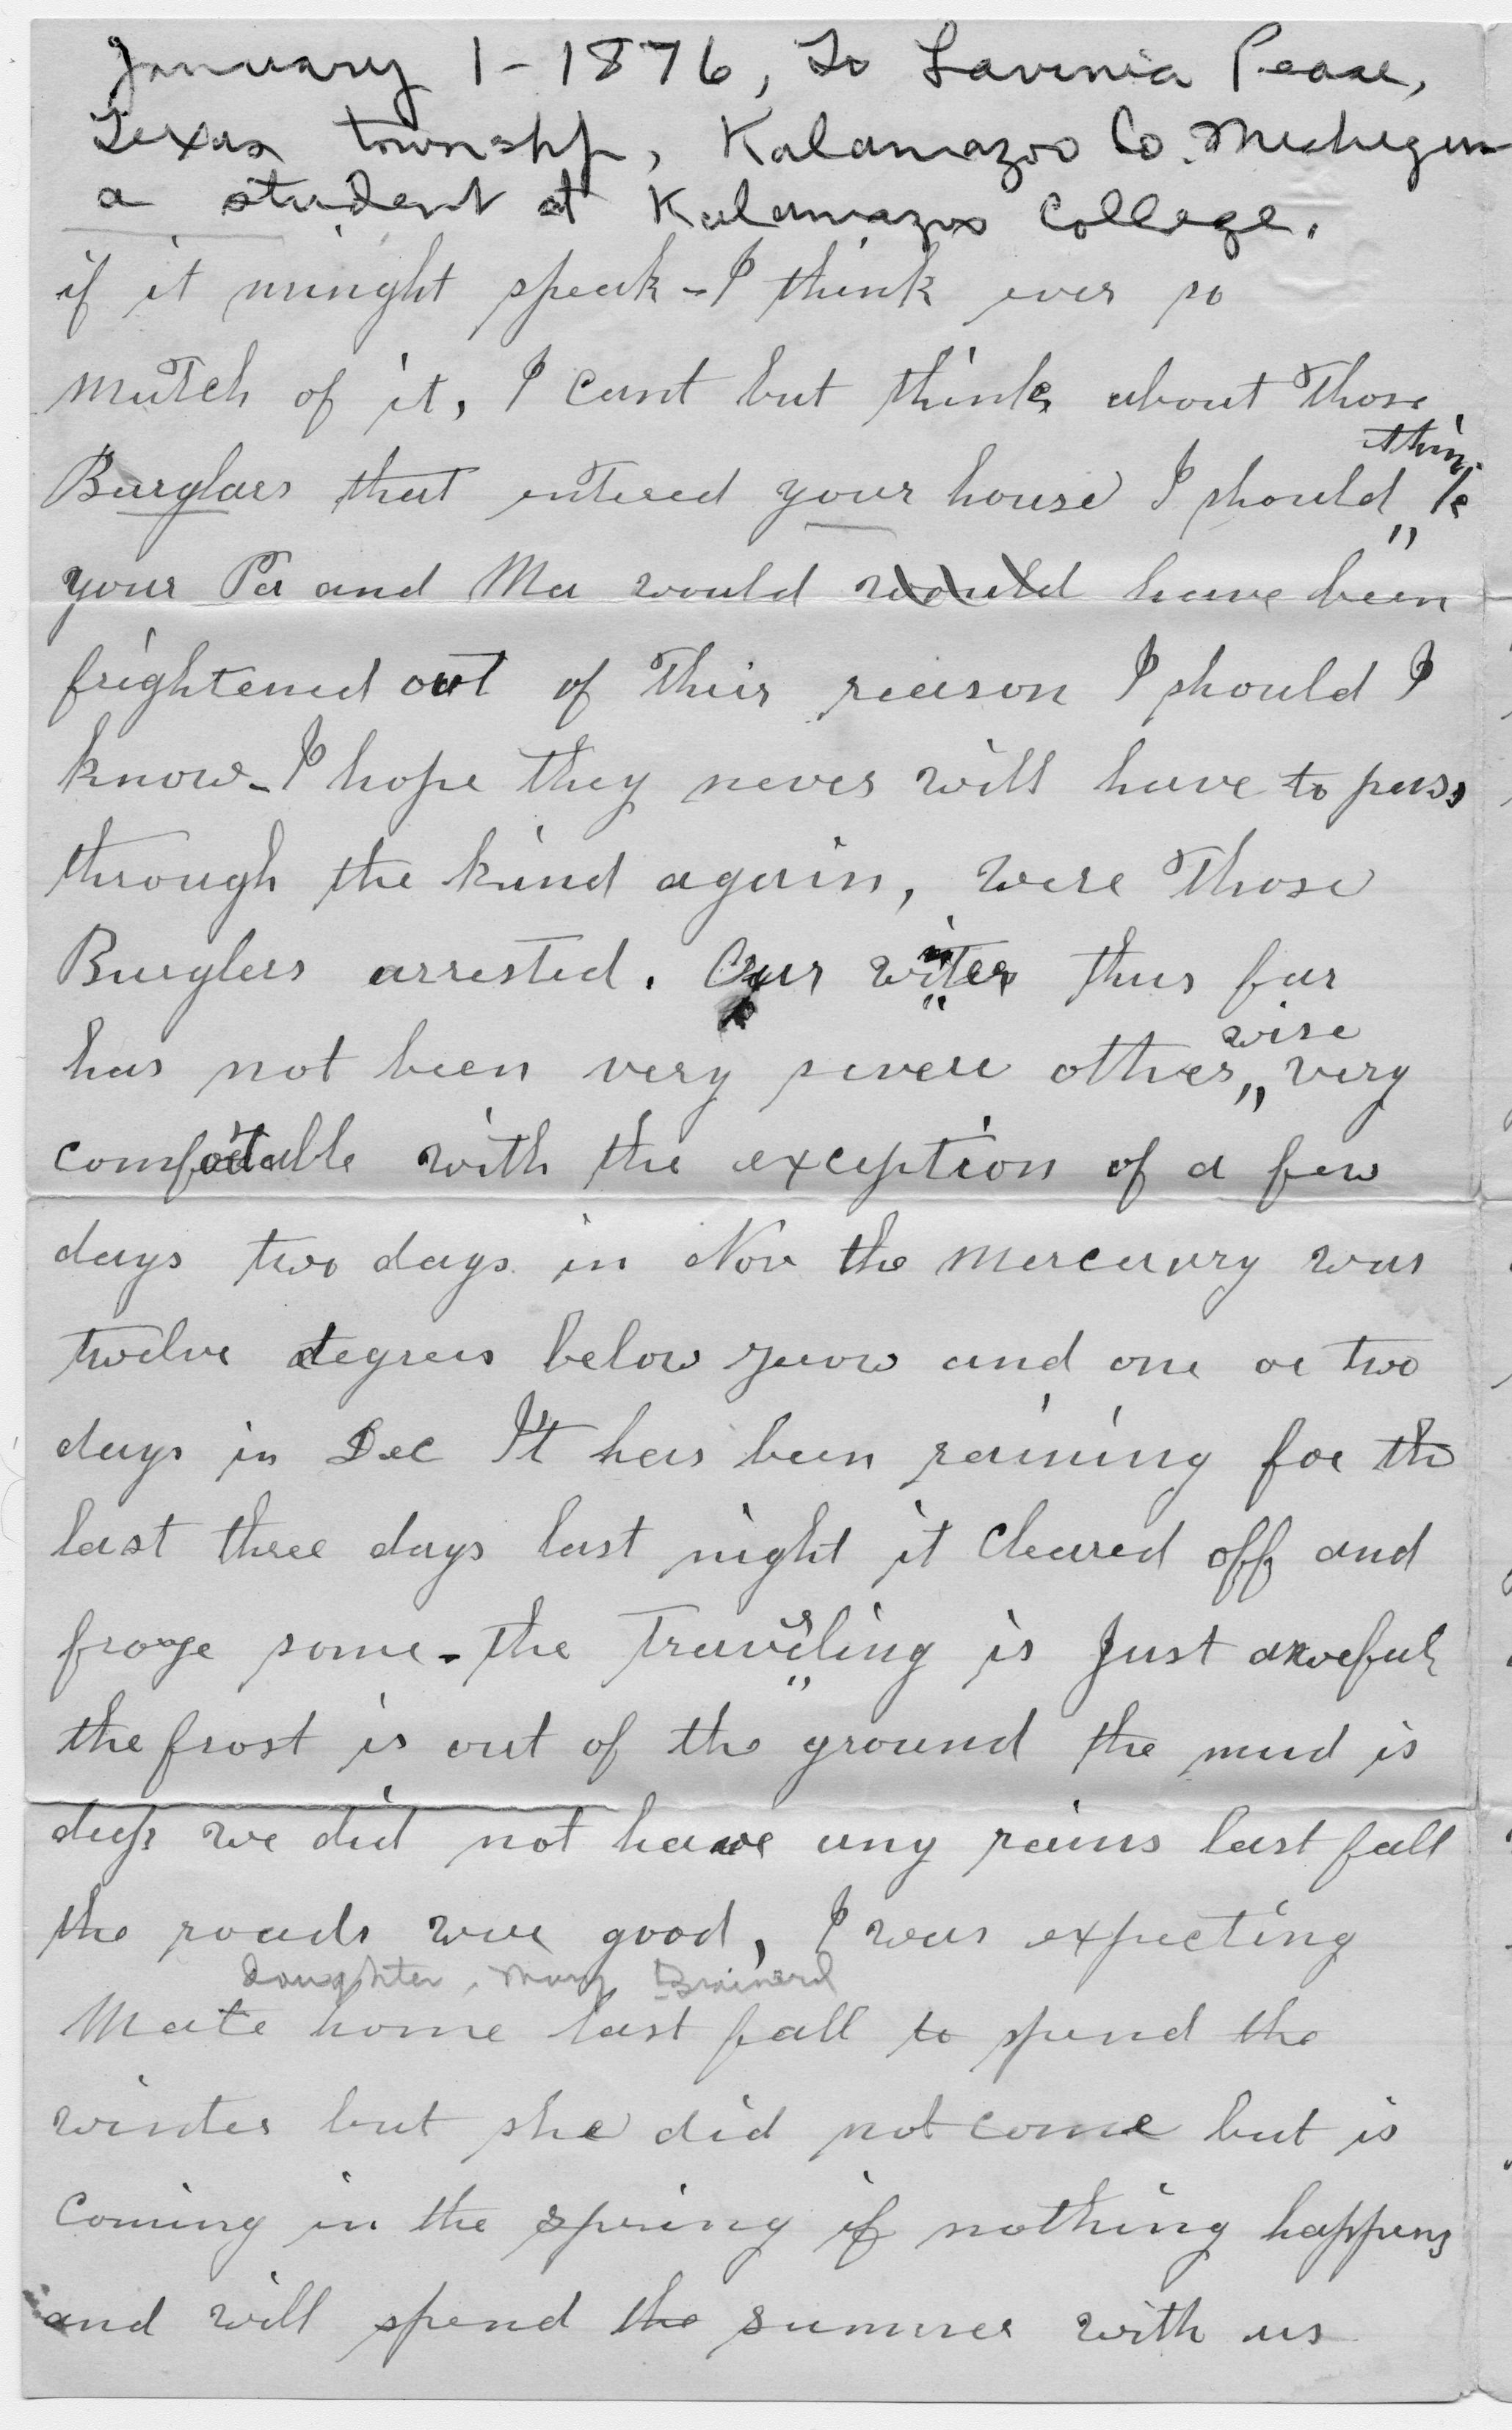 January 1-1876, To Lavinia Pease,
Texas townshp, Kalamazoo Co. Michigan
a student at Kalamazoo College.
if it minght speak - I think ever so
mutch of it, I cant but think about those
Burglars that entered your house I should think
your Pa and Ma would would have been
frightened out of their reason I should I
know - I hope they never will have to pass
through the kind again, were those
Burglers arrested. Our winter thus far
has not been very severe otherwise very
comfortable with the exception of a few
days two days in Nov the mercurry was
twelve degrees below zeuow and one or two
days in Dec It has been raining for the
last three days last night it cleared off and
froze some - the traveling is Just aweful
the frost is out of the ground the mud is
deep we did not have any rains last fall
the roads were good, I was expecting
Daughter, Mary Brainerd
Mate home last fall to spend the
winter but she did not come but is
coming in the spring if nothing happens
and will spend the summer with us